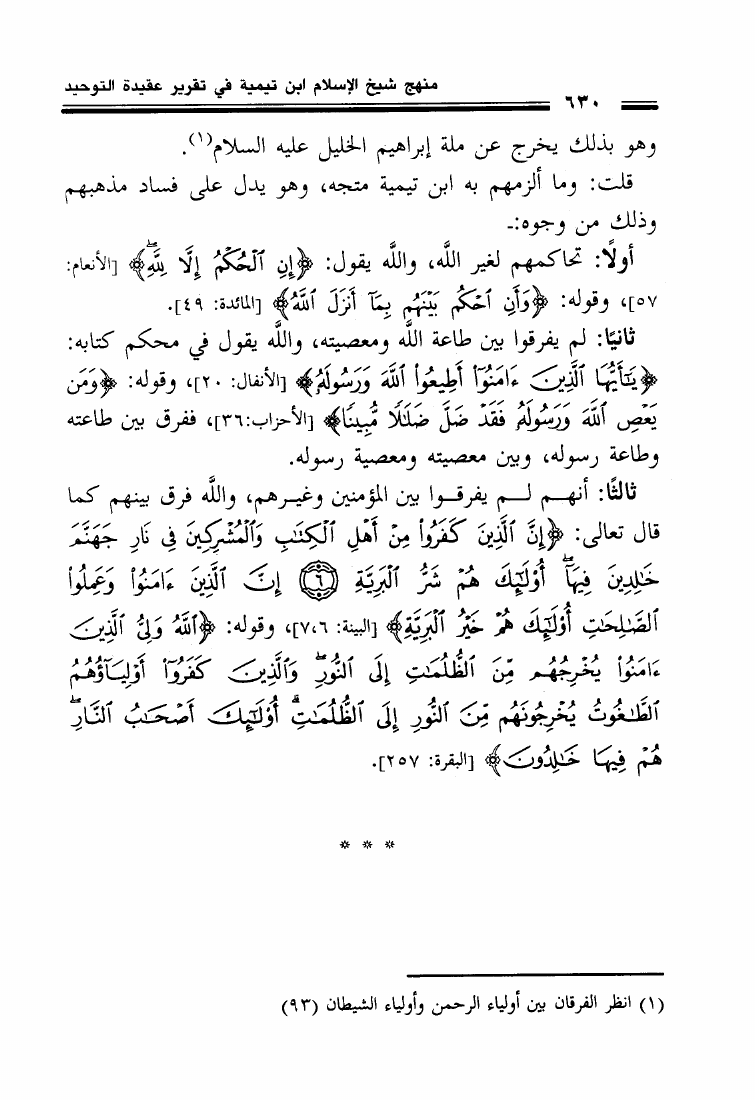 منهج شيخ الإسلام ابن تيمية في تقرير عقيدة التوحيد
٦٣٠
وهو بذلك يخرج عن ملة إبراهيم الخليل عليه السلام(١).
قلت: وما ألزمهم به ابن تيمية متجه، وهو يدل على فساد مذهبهم
وذلك من وجوه:ـ
أولًا: تحاكمهم لغير الله، والله يقول: ﴿إِنِ ٱلْحُكْمُ إِلَّا لِلَّهِۖ﴾ [الأنعام:
٥٧]، وقوله: ﴿وَأَنِ ٱحْكُم بَيْنَهُم بِمَآ أَنزَلَ ٱللَّهُ﴾ [المائدة: ٤٩].
ثانيًا: لم يفرقوا بين طاعة الله ومعصيته، والله يقول في محكم كتابه:
﴿يَٰٓأَيُّهَا ٱلَّذِينَ ءَامَنُوٓا۟ أَطِيعُوا۟ ٱللَّهَ وَرَسُولَهُۥ﴾ [الأنفال: ٢٠]، وقوله: ﴿وَمَن
يَعْصِ ٱللَّهَ وَرَسُولَهُۥ فَقَدْ ضَلَّ ضَلَٰلًا مُّبِينًا﴾ [الأحزاب:٣٦]، ففرق بين طاعته
وطاعة رسوله، وبين معصيته ومعصية رسوله.
ثالثًا: أنهـم لـم يفرقـوا بين المؤمنين وغيـرهم، والله فرق بينهم كما
قال تعالى: ﴿إِنَّ ٱلَّذِينَ كَفَرُوا۟ مِنْ أَهْلِ ٱلْكِتَٰبِ وَٱلْمُشْرِكِينَ فِى نَارِ جَهَنَّمَ
خَٰلِدِينَ فِيهَآۚ أُو۟لَٰٓئِكَ هُمْ شَرُّ ٱلْبَرِيَّةِ ٦ إِنَّ ٱلَّذِينَ ءَامَنُوا۟ وَعَمِلُوا۟
ٱلصَّٰلِحَٰتِ أُو۟لَٰٓئِكَ هُمْ خَيْرُ ٱلْبَرِيَّةِ﴾ [البينة: ٧،٦]، وقوله: ﴿ٱللَّهُ وَلِىُّ ٱلَّذِينَ
ءَامَنُوا۟ يُخْرِجُهُم مِّنَ ٱلظُّلُمَٰتِ إِلَى ٱلنُّورِۖ وَٱلَّذِينَ كَفَرُوٓا۟ أَوْلِيَآؤُهُمُ
ٱلطَّٰغُوتُ يُخْرِجُونَهُم مِّنَ ٱلنُّورِ إِلَى ٱلظُّلُمَٰتِۗ أُو۟لَٰٓئِكَ أَصْحَٰبُ ٱلنَّارِۖ
هُمْ فِيهَا خَٰلِدُونَ﴾ [البقرة: ٢٥٧].
* * *
(١) انظر الفرقان بين أولياء الرحمن وأولياء الشيطان (٩٣)